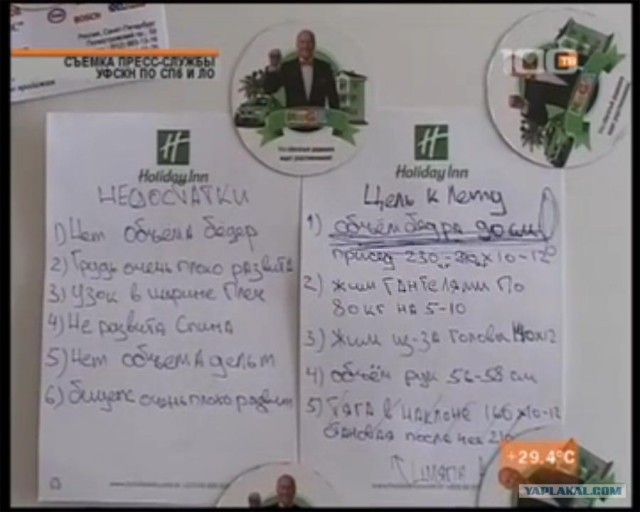 BOSCH
Россия, Санкт-Петербург
СЪЕМКА ПРЕСС-СЛУЖБЫ
УФСКН ПО СПб И ЛО
100 ТВ
Holiday Inn
НЕДОСТАТКИ
1) Нет объема бёдер
2) Грудь очень плохо развита
3) Узок в ширине плеч
4) Не развита Спина
5) Нет объема дельт
6) бицепс очень плохо развит
Holiday Inn
Цель к Лету
1) объём бедра до см
присед 230- х10-12
2) жим гантелями по
80 кг на 5-10
3) жим из-за головы 140х12
4) объём рук 56-58 см
5) Тяга в наклоне 160х10-12
становая после неё 210
+29.4°C
YAPLAKAL.COM